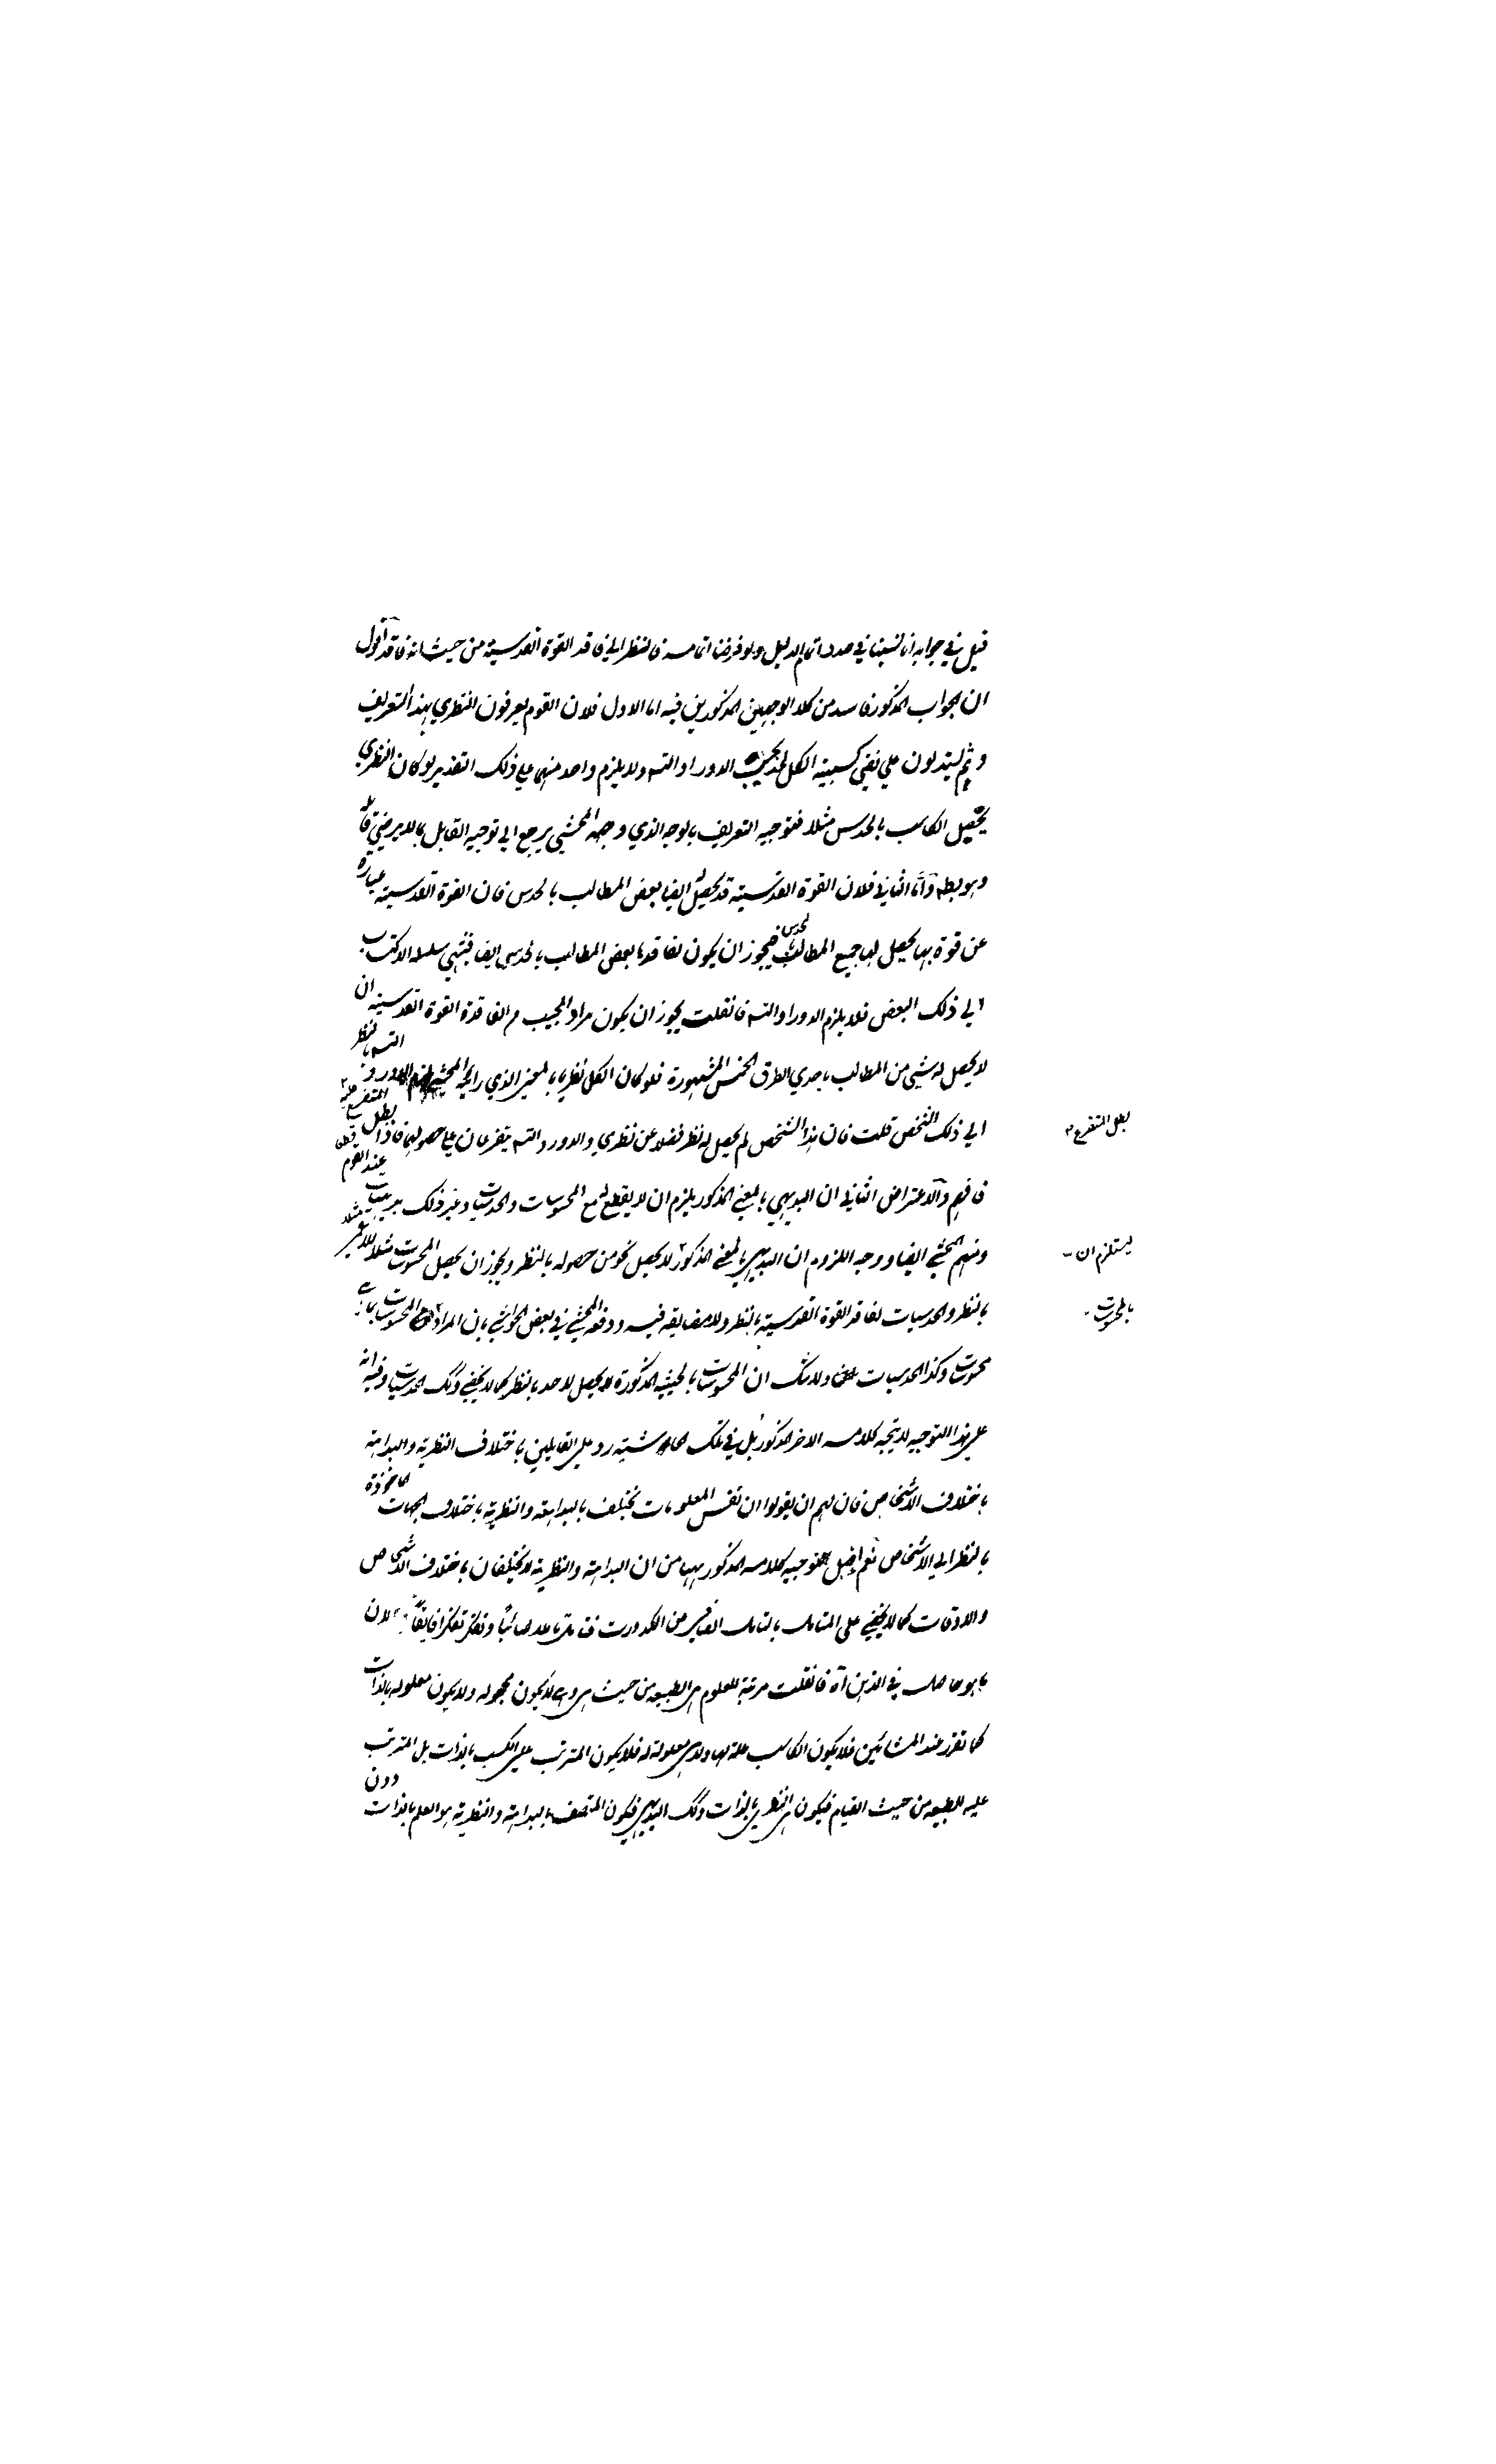 قيل في جوابه انا لسنا في صدد اتمام الدليل ولو فرضنا اتمامه فالنظر الى فاقد القوة القدسية من حيث انه فاقد اقول
ان الجواب المذكور فاسد من كلا الوجهين المذكورين فيه اما الاول فلان القوم يعرفون النظري بهذا التعريف
وثم يستدلون على نفي كسبية الكل الدور او التسه ولا يلزم واحد منهما على ذلك التقدير لو كان النظري
يحصل الكاسب بالحدس مثلا فتوجيه التعريف بالوجه الذي وجهه المحشي يرجع الى توجيه القايل بما لا يرضى قائله
وهو بط واما الثاني فلان القوة القدسية قد يحصل ايضا بعض المطالب بالحدس فان القوة القدسية عبارة
عن قوة بها يحصل لها جميع المطالب بالحدس فيجوز ان يكون لفاقدها بعض المطالب بالحدس ايضا فينتهي سلسلة الاكتساب
الى ذلك البعض فلا يلزم الدور او التسه فان قلت يجوز ان يكون مراد المجيب من الفاقدة القوة القدسية ان
لا يحصل له شيء من المطالب باحدى الطرق الخمس المشهورة فلو كان الكل نظريا بالمعنى الذي المحشي لزم الدور و التسه بالنظر
الى ذلك الشخص قلت فان هذا الشخص لم يحصل له نظر فضلا عن نظري والدور والتسه يتفرعان على حصولهما فاذا بطل المتفرع عليه
بطل المتفرع
فافهم والاعتراض الثاني ان البديهي بالمعنى المذكور يلزم ان لا يقطع مع المحسوسات والحدسيات وغير ذلك بديهيات عند القوم
يستلزم ان
ومنهم المحشي ايضا ووجه اللزوم ان البديهي بالمعنى المذكور لا يحصل نحو من حصوله بالنظر ويجوز ان يحصل المحسوسات مثلا للاعمى
بالنظر والحدسيات لفاقد القوة القدسية بالنظر ولا مضايقة فيه ودفعه المحشي في بعض الحواشي بان المراد من المحسوسات بما هي
بالمحسوسات
محسوسات وكذا الحدسيات ولا شك ان المحسوسات بالحيثية المذكورة لا يحصل لاحد بالنظر كما لا يخفى وكذلك الحدسيات وفيه انه
على هذا التوجيه لا يتجه كلامه الاخر المذكور بل في تلك الحاشية رد على القايلين باختلاف النظرية والبداهة
باختلاف الاشخاص فان لهم ان يقولوا ان نفس المعلومات تختلف بالبداهة والنظرية باختلاف الجهات الماخوذة
بالنظر الى الاشخاص نعم التوجيه كلامه المذكور ههنا من ان البداهة والنظرية لا يختلفان باختلاف الاشخاص
والاوقات كما لا يخفى على المتامل بالتامل الصافي من الكدورت فتامل تاملا صائبا وتفكر تفكرا فايقا لان
ما هو حاصل في الذهن آه فان قلت مرتبة المعلوم هي الطبيعة من حيث هي وهي لا يكون مجهوله ولا يكون معلوله بالذات
كما تقرر عند المشائين فلا يكون الكاسب علة لها ولا هي معلولة له فلا يكون المترتب على الكسب بالذات بل المترتب
عليه الطبيعة من حيث القيام فيكون هي النظري بالذات وكذلك البديهي فيكون المتصف بالبداهة والنظرية هو العلم بالذات دون